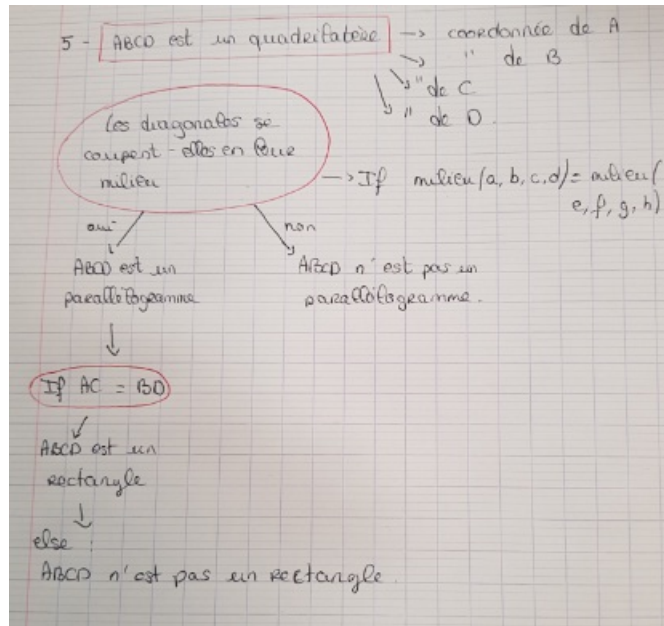 5 - ABCD est un quadrilatère → coordonnée de A
→ " de B
→ " de C
→ " de D.
Les diagonales se
coupent-elles en leur
milieu
→ If milieu(a, b, c, d) = milieu(
e, f, g, h)
oui
non
ABCD est un
parallélogramme
ABCD n'est pas un
parallélogramme.
If AC = BD
ABCD est un
rectangle
else :
ABCD n'est pas un rectangle.